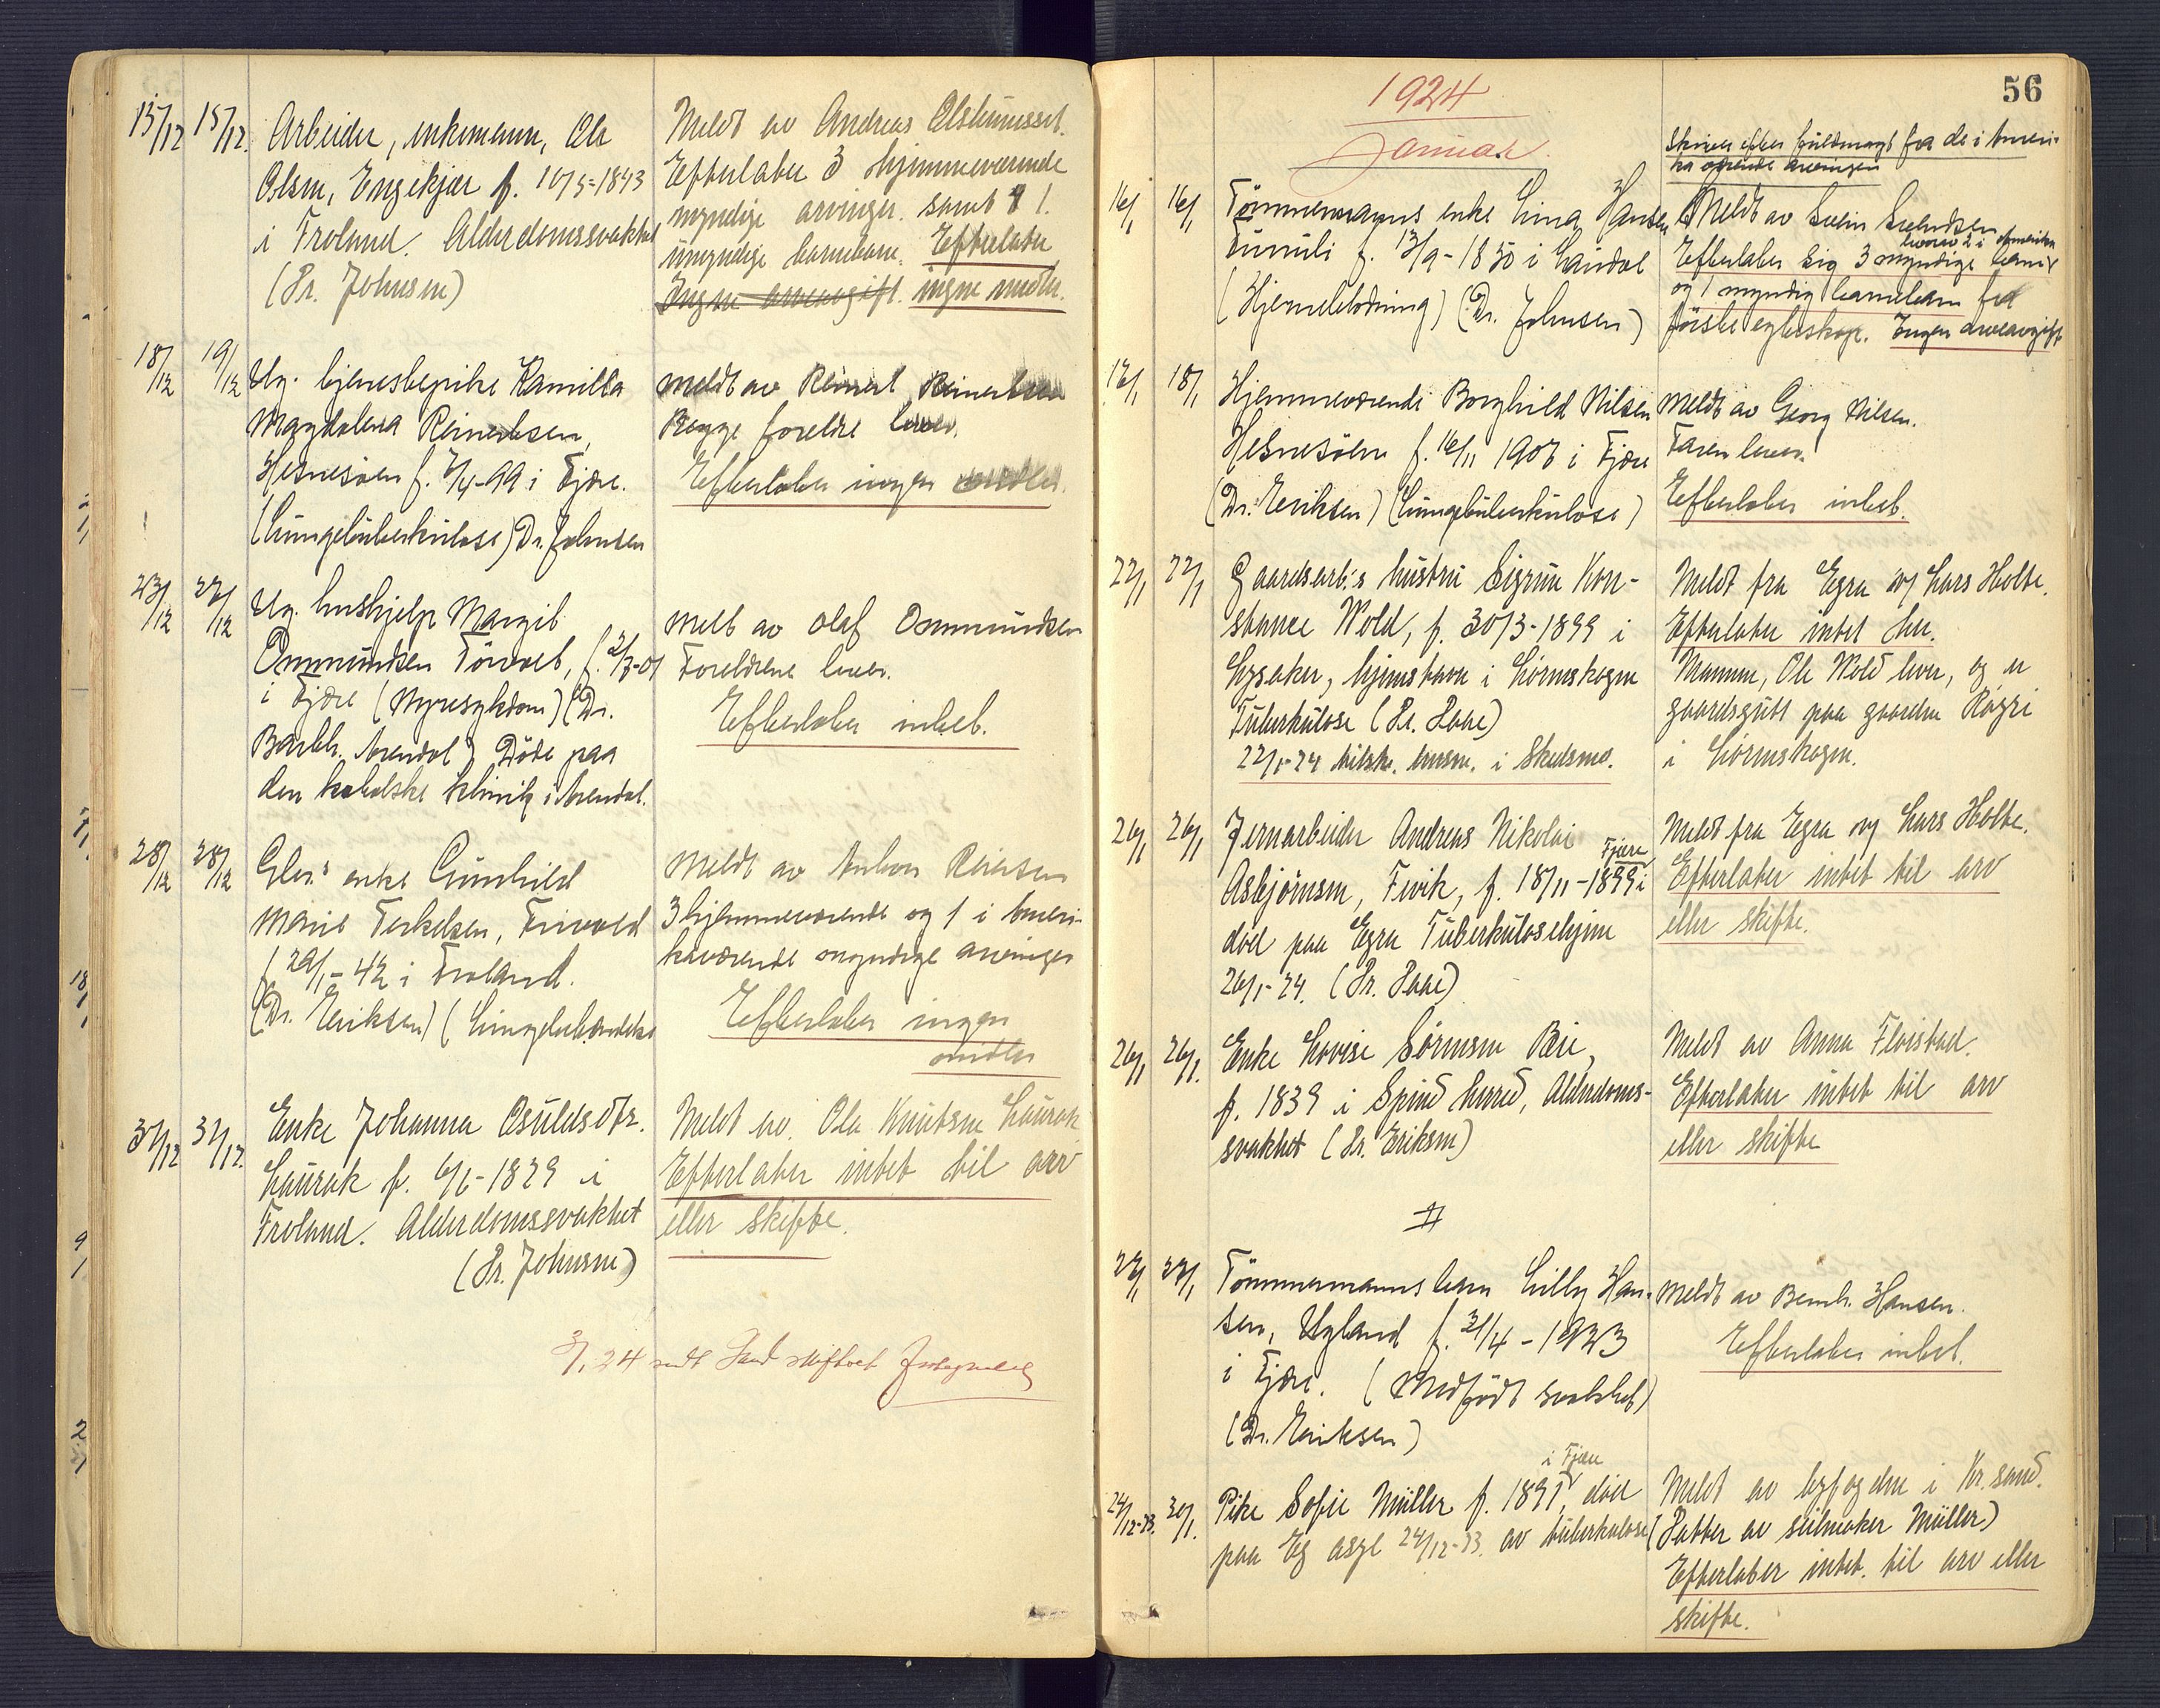 15/12 15/12. Arbeider, enkemann, Ola
Olsen, Engekjær f. 10/5-1843
i Froland. Alderdomssvakhet
(Dr. Johnsen)
Meldt av Andreas
Efterlater 3 hjemmeværende
myndige arvinger. samt 1
umyndige barnebarn. Efterlater
Ingen arveavgift. ingen midler.
18/12 19/12 Ug. tjenestepike Kamilla
Magdalena Reinertsen,
Hesnesøen f. 7/4-99 i Fjære.
(Lungetuberkulose) Dr. Johnsen
Meldt av Reinert Reinertsen
Begge foreldre lever.
Efterlater ingen midler.
23/12 27/12 Ug. hushjelp Margit
Ommundsen Törevet, f. 2/3-01
i Fjære (Nyresykdom) (Dr.
Barth. Arendal) Döde paa
den katolske klinik i Arendal.
Melt av Olaf Ommundsen
Foreldrene lever.
Efterlater intet.
28/12 28/12 Glm.s enke Gunhild
Marie Terkelsen, Frivold
f 29/1-42 i Froland.
(Dr. Eriksen) (Lungebetændelse
Meldt av Anton Reiersen
3 hjemmeværende og 1 i Ameri-
kaværende myndige arvinger
Efterlater ingen
midler
31/12 31/12. Enke Johanna Osuldsdtr.
Laurak f. 6/6-1829 i
Froland. Alderdomssvakhet
(Dr. Johnsen)
Meldt av. Ola Knutsen Laurak
Efterlater intet til arv
eller skifte.
3/1 24 sendt Sand skifteret
56
1924
Januar.
Skriver efter fuldmagt fra de i Ameri-
ka værende arvinger
16/1 16/1 Tömmermanns enke Lina Hansen
f. 13/9-1830 i Landvik
(Hjerneblödning) (Dr. Johnsen)
Meldt av Svein Svendsen
hvorav 2 i Amerika
Efterlater sig 3 myndige barn
og 1 myndig barnebarn fra
förste egteskap. Ingen arveavgift
17/1 18/1 Hjemmeværende Borghild Nilsen
Hesnesöen f. 16/11 1907 i Fjære
(Dr. Eriksen) (Lungetuberkulose)
Meldt av Georg Nilsen.
Faren lever.
Efterlater intet.
22/1 22/1 Gaardsarb.s hustru Sigrun Kon-
stance Wold, f. 30/3-1899 i
Lysaker, hjemstavn i Lörenskogen
Tuberkulose (Dr. Haae)
22/1-24 tilskr. lensm. i Skedsmo.
Meldt fra Egra v/ Lars Holte.
Efterlater intet her.
Mannen, Ole Wold lever, og er
gaardsgutt paa gaarden Røgri
i Lörenskogen.
26/1 26/1 Jernarbeider Andreas Nikolai
Fjære
Asbjörnsen, Fevik, f. 18/11-1899 i
död paa Egra Tuberkulosehjem
26/1-24. (Dr. Haae)
Meldt fra Egra v/ Lars Holte.
Efterlater intet til arv
eller skifte.
26/1 26/1. Enke Lovise Sörensen Bie,
f. 1839 i Spind herred, Alderdoms-
svakhet (Dr. Eriksen)
Meldt av Anna Fløistad.
Efterlater intet til arv
eller skifte
#
27/1 27/1 Tömmermanns barn Lilly Han-
sen, Ugland f. 21/4-1923
i Fjære. (Medfödt svakhet)
(Dr. Eriksen)
Meldt av Bernh. Hansen.
Efterlater intet.
24/12-23. 30/1. Pike Sofie Müller f. 1891 i Fjære, död
paa Eg asyl 24/12-23. av tuberkulose
Meldt av byfogden i Kr.sand.
(Datter av seilmaker Müller)
Efterlater intet til arv eller
skifte.